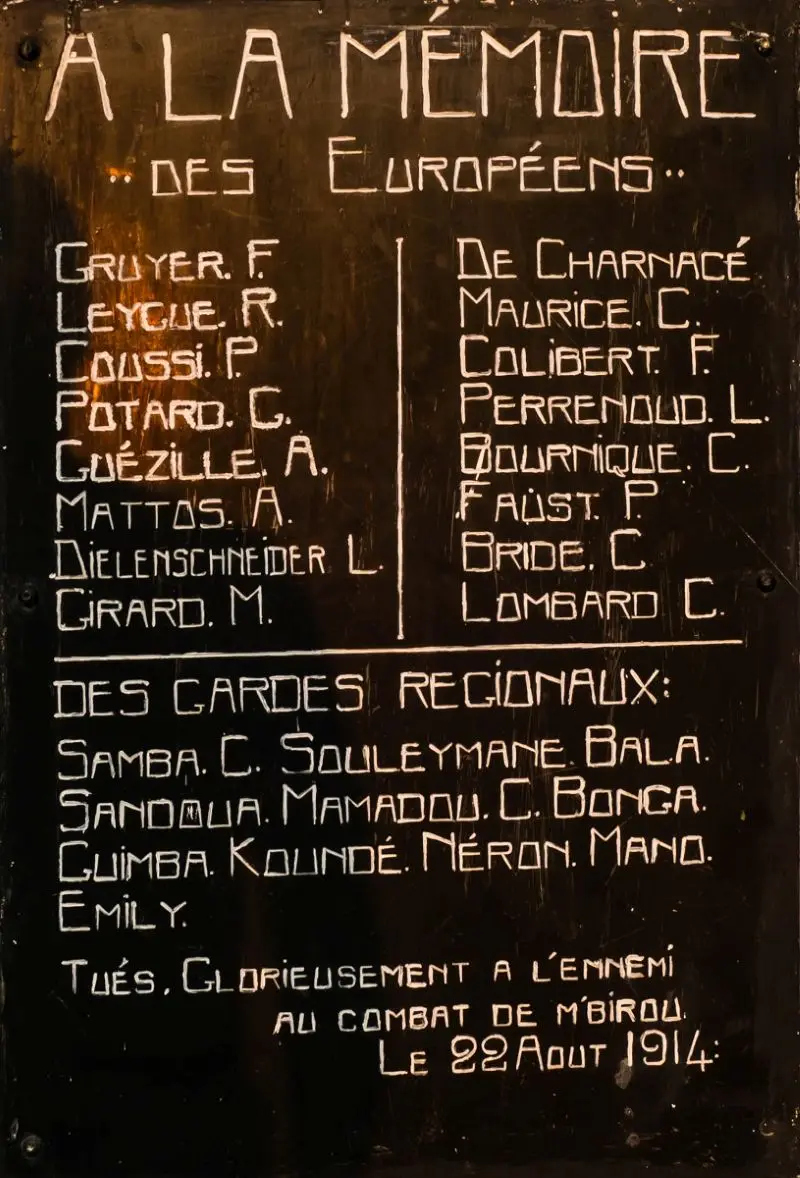 A LA MÉMOIRE
·· DES EUROPÉENS ··
GRUYER. F.
LEYGUE. R.
COUSSI. P.
POTARD. G.
GUÉZILLE. A.
MATTOS. A.
DIELENSCHNEIDER L.
GIRARD. M.
DE CHARNACÉ
MAURICE. C.
COLIBERT. F.
PERRENOUD. L.
BOURNIQUE. C.
FAÜST. P.
BRIDE. C
LOMBARD C.
DES GARDES REGIONAUX:
SAMBA. C. SOULEYMANE. BALA.
SANDOUA. MAMADOU. C. BONGA.
GUIMBA. KOUNDÉ. NÉRON. MANO.
EMILY.
TUÉS, GLORIEUSEMENT A L'ENNEMI
AU COMBAT DE M'BIROU.
LE 22 AOUT 1914: